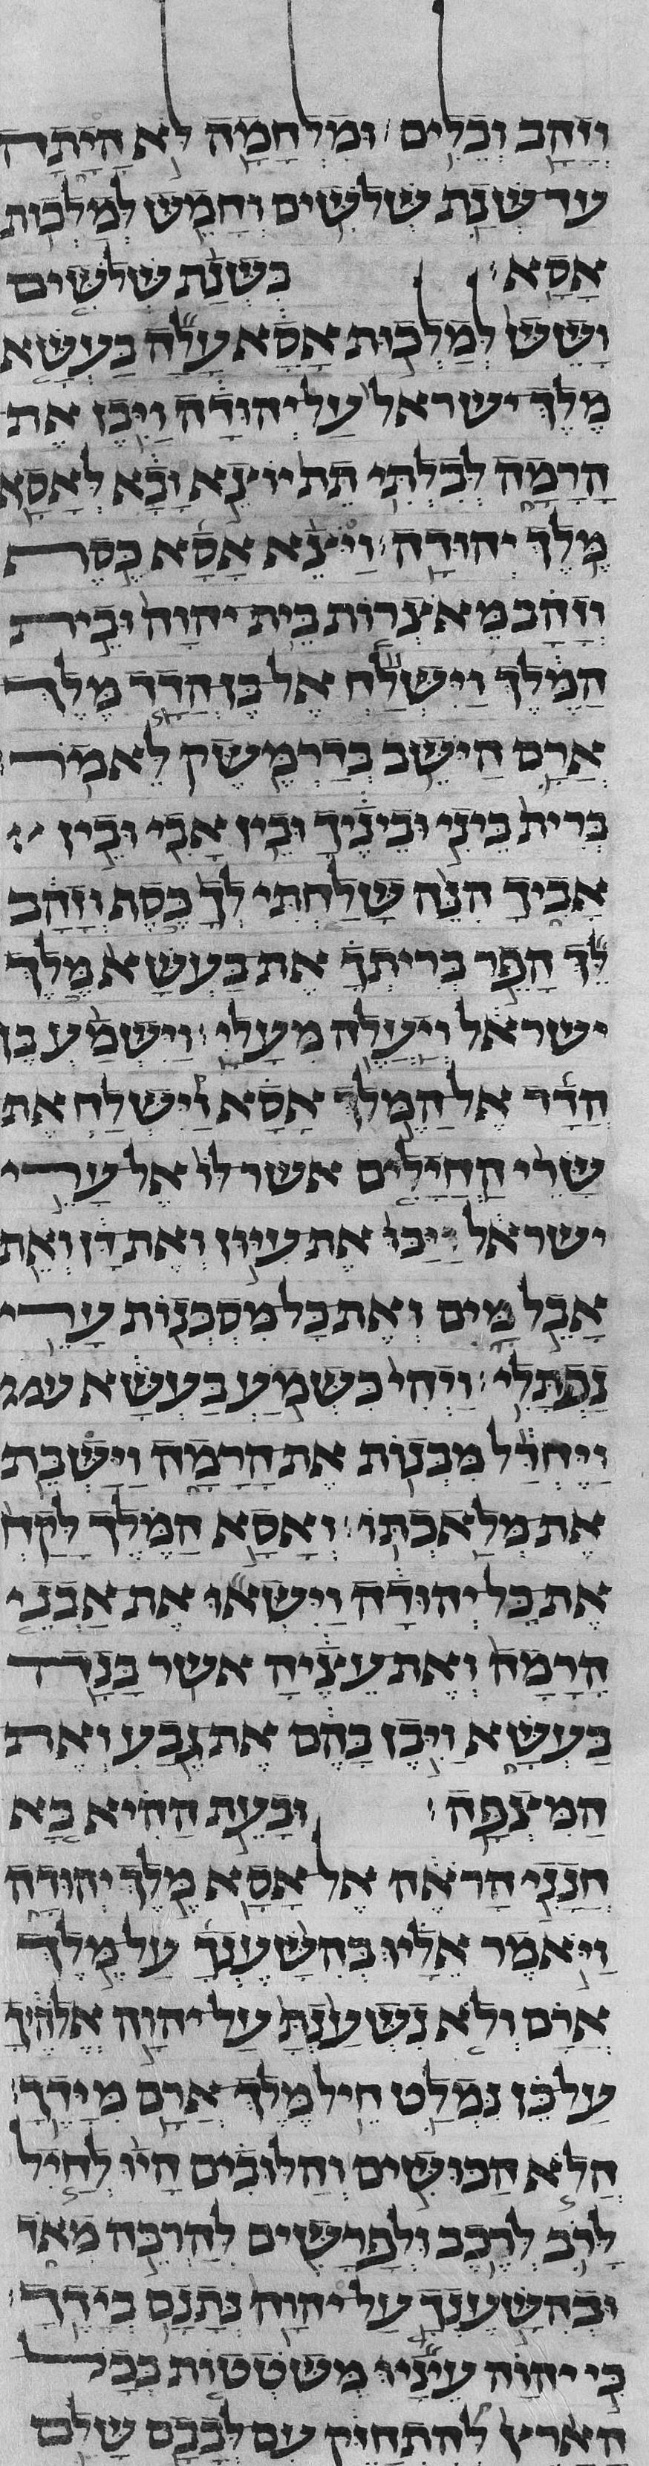 וְזָהָב וְכֵלִים׃ וּמִלְחָמָה לֹא הָיָתָה
עַד שְׁנַת שְׁלֹשִׁים וְחָמֵשׁ לְמַלְכוּת
אָסָא׃ בִּשְׁנַת שְׁלֹשִׁים
וָשֵׁשׁ לְמַלְכוּת אָסָא עָלָה בַּעְשָׁא
מֶלֶךְ יִשְׂרָאֵל עַל יְהוּדָה וַיִּבֶן אֶת
הָרָמָה לְבִלְתִּי תֵּת יוֹצֵא וָבָא לְאָסָא
מֶלֶךְ יְהוּדָה׃ וַיֹּצֵא אָסָא כֶּסֶף
וְזָהָב מֵאֹצְרוֹת בֵּית יְהוָה וּבֵית
הַמֶּלֶךְ וַיִּשְׁלַח אֶל בֶּן הֲדַד מֶלֶךְ
אֲרָם הַיּשֵׁב בְּדַרְמֶשֶׂק לֵאמֹר׃
בְּרִית בֵּינִי וּבֵינֶךָ וּבֵין אָבִי וּבֵין
אָבִיךָ הִנֵּה שָׁלַחְתִּי לְךָ כֶּסֶף וְזָהָב
לֵךְ הָפֵר בְּרִיתְךָ אֶת בַּעְשָׁא מֶלֶךְ
יִשְׂרָאֵל וְיַעֲלֶה מֵעָלָי׃ וַיִּשְׁמַע בֶּן
הֲדַד אֶל הַמֶּלֶךְ אָסָא וַיִּשְׁלַח אֶת
שָׂרֵי הַחֲיָלִים אֲשֶׁר לוֹ אֶל עָרֵי
יִשְׂרָאֵל וַיַּכּוּ אֶת עִיּוֹן וְאֶת דָּן וְאֵת
אָבֵל מָיִם וְאֵת כָּל מִסְכְּנוֹת עָרֵי
נַפְתָּלִי׃ וַיְהִי כִּשְׁמֹעַ בַּעְשָׁא
וַיֶּחְדַּל מִבְּנוֹת אֶת הָרָמָה וַיַּשְׁבֵּת
אֶת מְלַאכְתּוֹ׃ וְאָסָא הַמֶּלֶךְ לָקַח
אֶת כָּל יְהוּדָה וַיִּשְׂאוּ אֶת אַבְנֵי
הָרָמָה וְאֶת עֵצֶיהָ אֲשֶׁר בָּנָה
בַּעְשָׁא וַיִּבֶן בָּהֶם אֶת גֶּבַע וְאֶת
הַמִּצְפָּה׃ וּבָעֵת הַהִיא בָּא
חֲנָנִי הָרֹאֶה אֶל אָסָא מֶלֶךְ יְהוּדָה
וַיֹּאמֶר אֵלָיו בְּהִשָּׁעֶנְךָ עַל מֶלֶךְ
אֲרָם וְלֹא נִשְׁעַנְתָּ עַל יְהוָה אֱלֹהֶיךָ
עַל כֵּן נִמְלַט חֵיל מֶלֶךְ אֲרָם מִיָּדֶךָ׃
הֲלֹא הַכּוּשִׁים וְהַלּוּבִים הָיוּ לְחַיִל
לָרֹב לְרֶכֶב וּלְפָרָשִׁים לְהַרְבֵּה מְאֹד
וּבְהִשָּׁעֶנְךָ עַל יְהוָה נְתָנָם בְּיָדֶךָ׃
כִּי יְהוָה עֵינָיו מְשֹׁטְטוֹת בְּכָל
הָאָרֶץ לְהִתְחַזֵּק עִם לְבָבָם שָׁלֵם